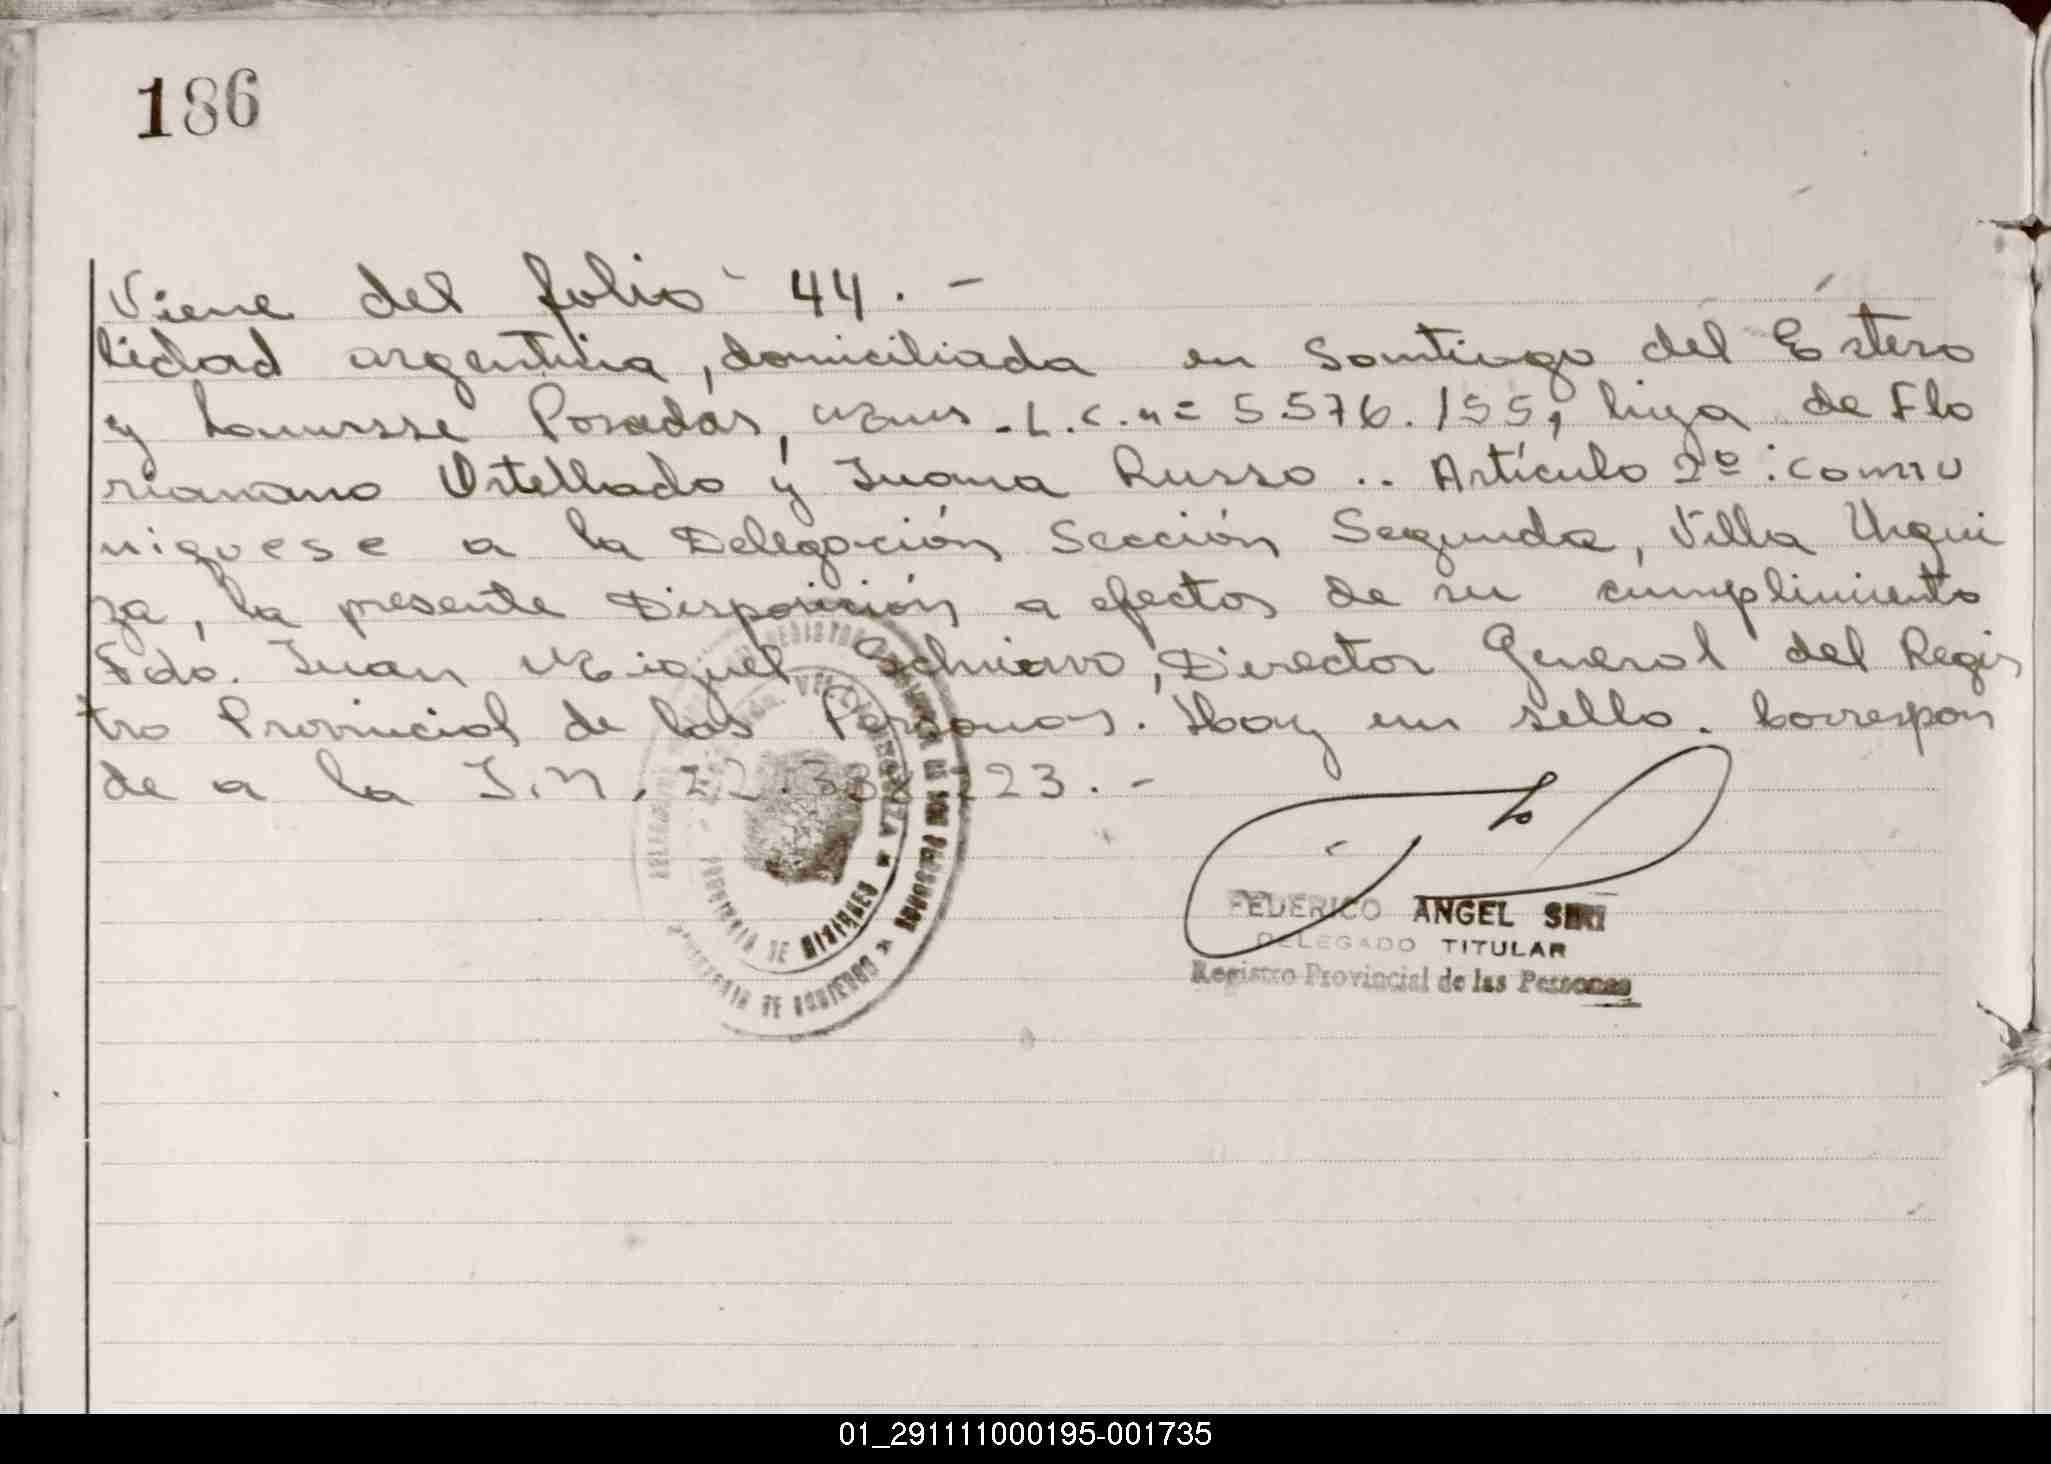 186
Viene del folio 44. -
lidad argentina, domiciliada en Santiago del Estero
y Lanusse Posadas, Mnes. L.C. nº 5.576.155, hija de Flo
riano Ortellado y Juana Russo .. Artículo 2º: comu
niquese a la Delegación Sección Segunda, Villa Urqui
za, la presente Disposición a efectos de su cumplimiento
Fdo. Juan Miguel Schiavo, Director General del Regis
tro Provincial de las Personas. Hay un sello. Correspon
de a la I.N. 22. 223. -
FEDERICO ANGEL
DELEGADO TITULAR
Registro Provincial de las Personas
PROVINCIA DE MISIONES
01_291111000195-001735